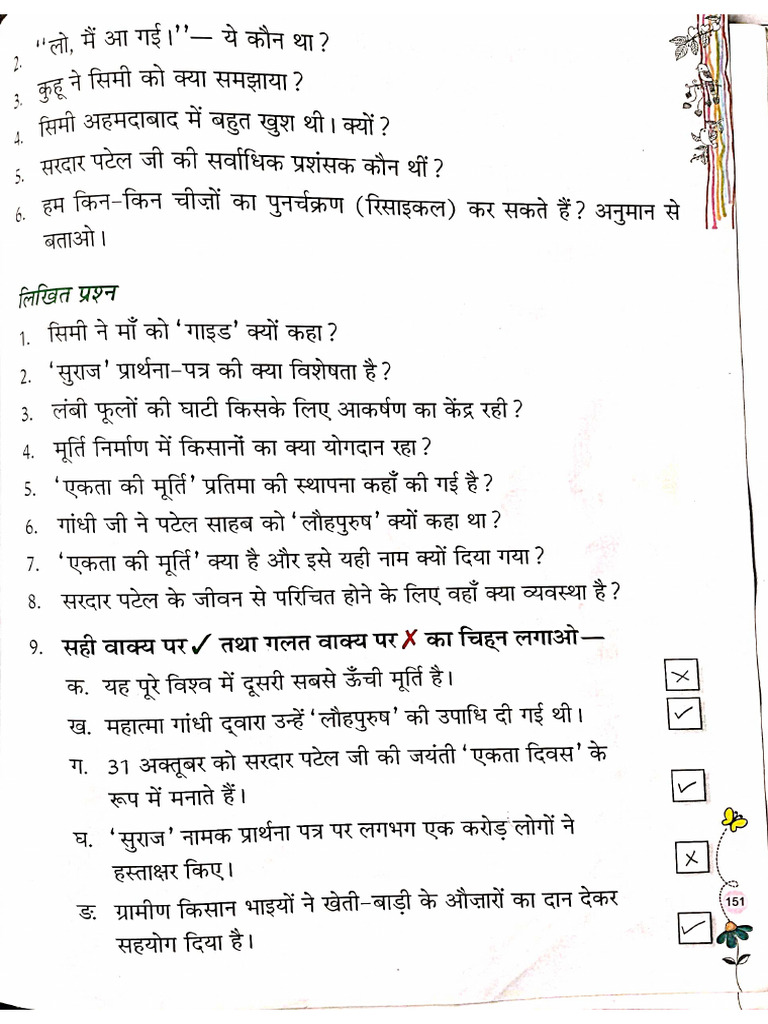 2. “लो, मैं आ गई।”— ये कौन था?
3. कुहू ने सिमी को क्या समझाया?
4. सिमी अहमदाबाद में बहुत खुश थी। क्यों?
5. सरदार पटेल जी की सर्वाधिक प्रशंसक कौन थीं?
6. हम किन-किन चीज़ों का पुनर्चक्रण (रिसाइकल) कर सकते हैं? अनुमान से
बताओ।
लिखित प्रश्न
1. सिमी ने माँ को ‘गाइड’ क्यों कहा?
2. ‘सुराज’ प्रार्थना-पत्र की क्या विशेषता है?
3. लंबी फूलों की घाटी किसके लिए आकर्षण का केंद्र रही?
4. मूर्ति निर्माण में किसानों का क्या योगदान रहा?
5. ‘एकता की मूर्ति’ प्रतिमा की स्थापना कहाँ की गई है?
6. गांधी जी ने पटेल साहब को ‘लौहपुरुष’ क्यों कहा था?
7. ‘एकता की मूर्ति’ क्या है और इसे यही नाम क्यों दिया गया?
8. सरदार पटेल के जीवन से परिचित होने के लिए वहाँ क्या व्यवस्था है?
9. सही वाक्य पर ✓ तथा गलत वाक्य पर ✗ का चिह्न लगाओ—
क. यह पूरे विश्व में दूसरी सबसे ऊँची मूर्ति है। ✗
ख. महात्मा गांधी द्वारा उन्हें ‘लौहपुरुष’ की उपाधि दी गई थी। ✓
ग. 31 अक्तूबर को सरदार पटेल जी की जयंती ‘एकता दिवस’ के
रूप में मनाते हैं। ✓
घ. ‘सुराज’ नामक प्रार्थना पत्र पर लगभग एक करोड़ लोगों ने
हस्ताक्षर किए। ✗
ङ. ग्रामीण किसान भाइयों ने खेती-बाड़ी के औज़ारों का दान देकर
सहयोग दिया है। ✓
151